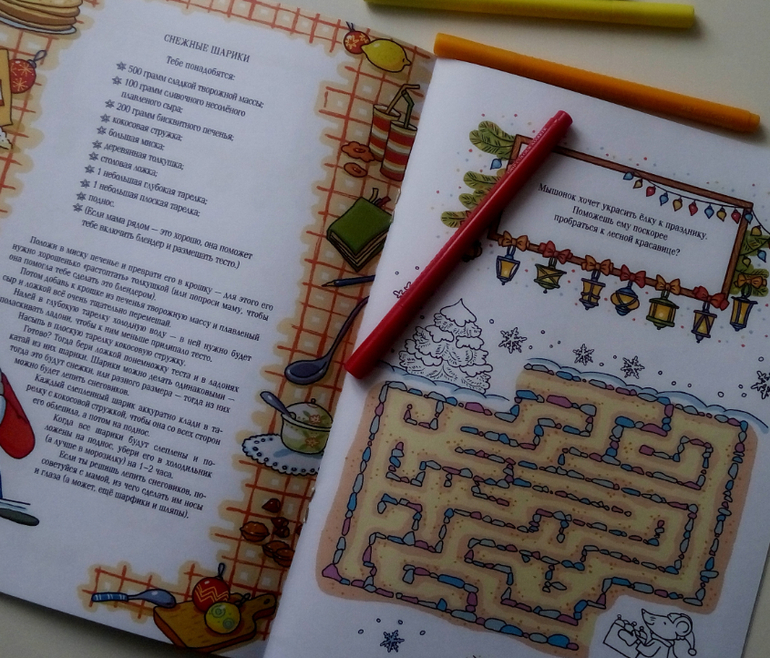 СНЕЖНЫЕ ШАРИКИ
Тебе понадобятся:
500 грамм сладкой творожной массы;
100 грамм сливочного несолёного
плавленого сыра;
200 грамм бисквитного печенья;
кокосовая стружка;
большая миска;
деревянная толкушка;
столовая ложка;
1 небольшая глубокая тарелка;
1 небольшая плоская тарелка;
поднос.
(Если мама рядом — это хорошо, она поможет
тебе включить блендер и размешать тесто.)
Положи в миску печенье и преврати его в крошку — для этого его
нужно хорошенько «растоптать» толкушкой (или попроси маму, чтобы
она помогла тебе сделать это блендером).
Потом добавь к крошке из печенья творожную массу и плавленый
сыр и ложкой всё очень тщательно перемешай.
Налей в глубокую тарелку холодную воду — в ней нужно будет
полоскать ладони, чтобы к ним меньше прилипало тесто.
Насыпь в плоскую тарелку кокосовую стружку.
Готово? Тогда бери ложкой понемножку теста и в ладонях
катай из них шарики. Шарики можно делать одинаковыми —
тогда это будут снежки, или разного размера — тогда из них
можно будет лепить снеговиков.
Каждый слепленный шарик аккуратно клади в та-
релку с кокосовой стружкой, чтобы она со всех сторон
его облепила, а потом на поднос.
Когда все шарики будут слеплены и по-
ложены на поднос, убери его в холодильник
(а лучше в морозилку) на 1–2 часа.
Если ты решишь лепить снеговиков, по-
советуйся с мамой, из чего сделать им носы
и глаза (а может, ещё шарфики и шляпы).
Мышонок хочет украсить ёлку к празднику.
Поможешь ему поскорее
пробраться к лесной красавице?